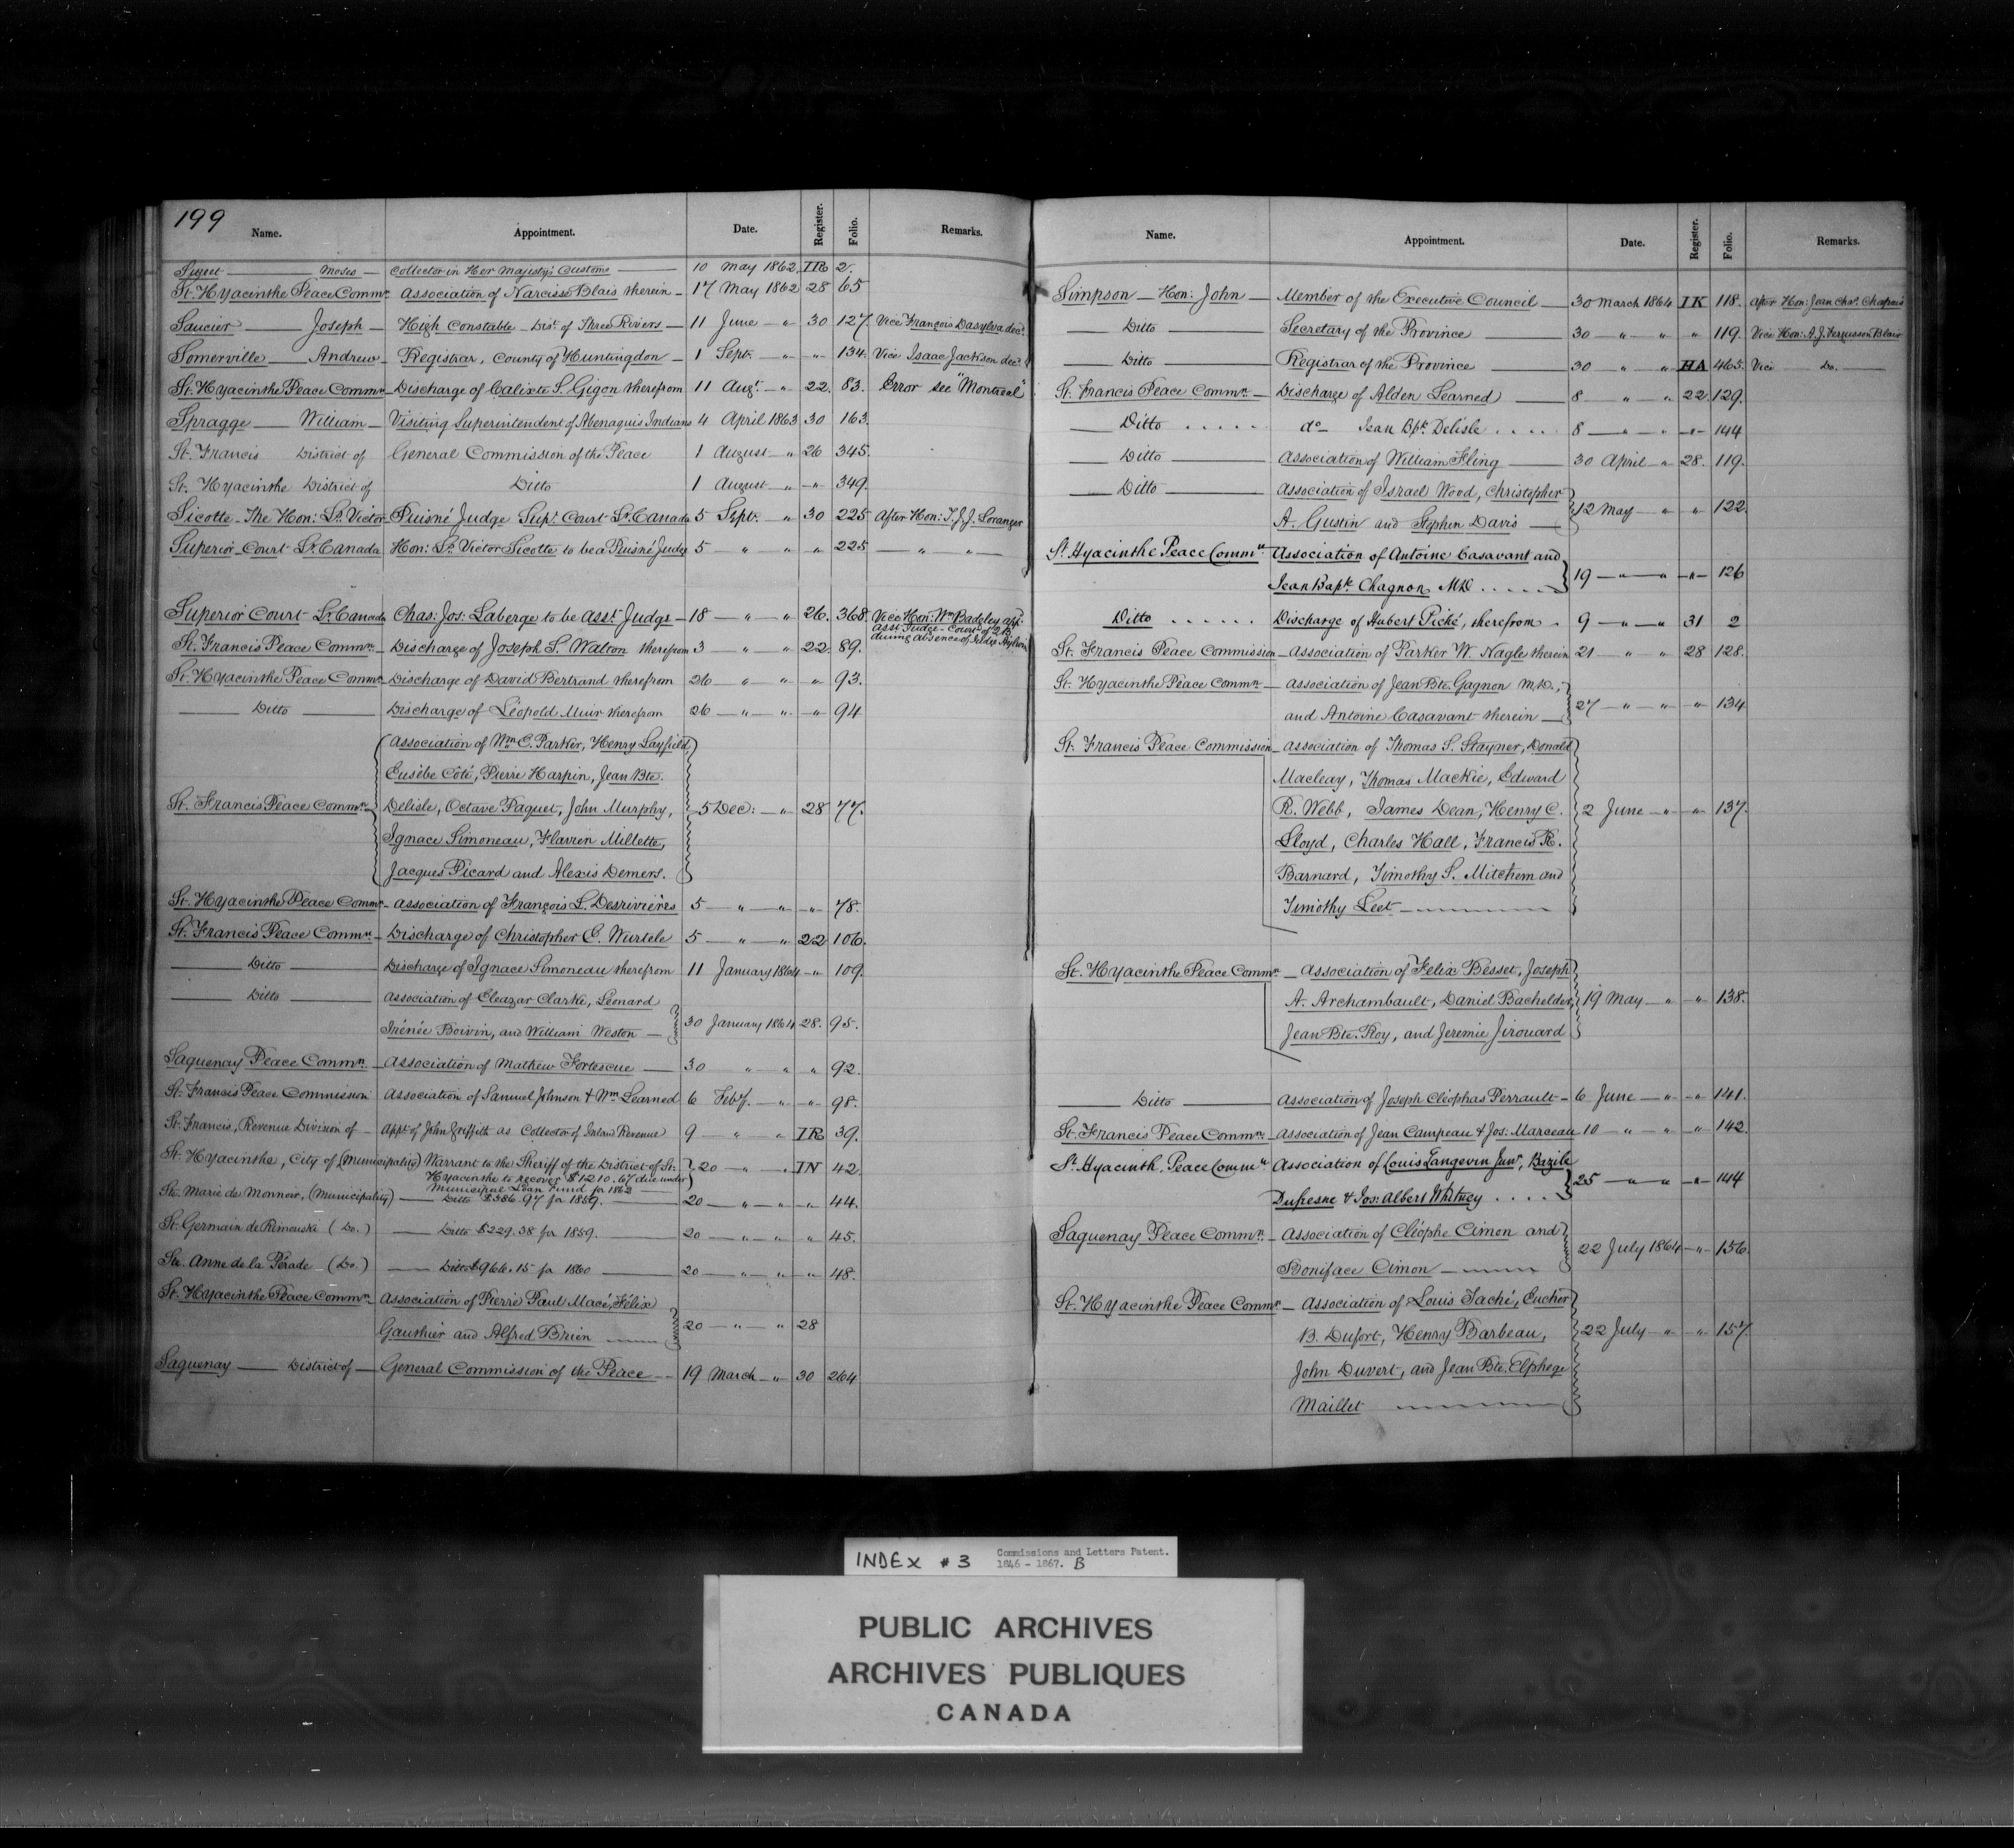 199
Name. Appointment. Date. Register. Folio. Remarks.
Moses — Collector in Her Majesty's Customs — 10 May 1862. IR 2.
St. Hyacinthe Peace Commn. Association of Narcisse Blais therein — 17 May 1862 28 65
Saucier — Joseph — High Constable — Dist. of Three Rivers — 11 June — " 30 127. Vice François Dasylva decd.
Somerville — Andrew — Registrar, County of Huntingdon — 1 Sept. — " — " — 134. Vice Isaac Jackson decd.
St. Hyacinthe Peace Commn. — Discharge of Calixte S. Gigon therefrom 11 Augt. — " 22. 83. Error see "Montreal"
Spragge — William — Visiting Superintendent of Abenaquis Indians 4 April 1863 30 163.
St. Francis District of General Commission of the Peace 1 August — " 26 345.
St. Hyacinthe District of Ditto 1 August — " — " — 349.
Sicotte — The Hon: Ls. Victor — Puisné Judge Supr. Court Lr. Canada 5 Sept. — " 30 225 After Hon: T. J. J. Loranger
Superior Court Lr. Canada Hon: Ls. Victor Sicotte to be a Puisné Judge 5 — " — " " 225 — " — " —
Superior Court — Lr. Canada Chas: Jos: Laberge to be asst. Judge — 18 — " — " 26. 368. Vice Hon: Wm. Badgley app.
Asst. Judge — Court of Q.B.
during absence of Judge Aylwin
St. Francis Peace Commn. — Discharge of Joseph S. Walton therefrom 3 — " — " 22. 89.
St. Hyacinthe Peace Commn. — Discharge of David Bertrand therefrom 26 — " — " — " — 93.
— Ditto — Discharge of Léopold Muir therefrom 26 — " — " — " — 94
Association of Wm. E. Parker, Henry Layfield,
Eusébe Côté, Pierre Harpin, Jean Bte.
St. Francis Peace Commn. Delisle, Octave Paquet, John Murphy, 5 Dec: — " 28 77.
Ignace Simoneau, Flavien Millette,
Jacques Picard and Alexis Demers.
St. Hyacinthe Peace Commn. — Association of François L. Desrivières 5 — " — " — " — 78.
St. Francis Peace Commn. — Discharge of Christopher E. Wurtele 5 — " — " 22 106.
— Ditto — Discharge of Ignace Simoneau therefrom 11 January 1864 — " 109.
— Ditto — Association of Eleazar Clarke, Leonard
Irénée Boivin, and William Weston — 30 January 1864 28. 95.
Saguenay Peace Commn. — Association of Mathew Fortescue — 30 " — " " 92.
St. Francis Peace Commission Association of Samuel Johnson & Wm. Learned 6 Feby. — " — " — 98.
St. Francis, Revenue Division of — Appt. of John Griffith as Collector of Inland Revenue 9 — " — " IR 39.
St. Hyacinthe, City of (Municipality) Warrant to the Sheriff of the District of St. 20 — " — " IN 42.
Hyacinthe to recover $1210.67 due under
Municipal Loan Fund for 1862
Ste. Marie de Monnoir, (Municipality) — Ditto $386.97 for 1859. — 20 — " — " — " — 44.
St. Germain de Rimouski (Do.) — Ditto $229.38 for 1859. — 20 — " — " " 45.
Ste. Anne de la Pérade — (Do.) — Ditto $966.15 for 1860 — 20 — " — " — " 48.
St. Hyacinthe Peace Commn. — Association of Pierre Paul Macé, Felix
Gauthier and Alfred Brien — 20 — " — " 28
Saguenay — District of — General Commission of the Peace — 19 March — " 30 264
Name. Appointment. Date. Register. Folio. Remarks.
Simpson — Hon: John — Member of the Executive Council — 30 March 1864 IK 118. After Hon: Jean Chs. Chapais
— Ditto — Secretary of the Province — 30 — " — " " 119. Vice Hon: A. J. Fergusson Blair
— Ditto — Registrar of the Province — 30 — " — " HA 465. Vice Do. —
St. Francis Peace Commn. — Discharge of Alden Learned — 8 — " — " 22. 129.
— Ditto . . . . . do — Jean Bpte. Delisle . . . . 8 — " — " — " — 144
— Ditto — Association of William Fling — 30 April — " 28. 119.
— Ditto — Association of Israel Wood, Christopher
A. Gustin and Stephen Davis — 12 May — " " 122.
St. Hyacinthe Peace Commn. Association of Antoine Casavant and
Jean Bapte. Chagnon, M.D. . . . . . 19 — " — " — " — 126
Ditto . . . . . . Discharge of Hubert Piché, therefrom . 9 — " — " 31 2
St. Francis Peace Commission — Association of Parker W. Nagle therein 21 — " — " 28 128.
St. Hyacinthe Peace Commn. — Association of Jean Bte. Gagnon M.D.,
and Antoine Casavant therein — 27 — " — " — " 134
St. Francis Peace Commission — Association of Thomas S. Stayner, Donald
Macleay, Thomas Mackie, Edward
R. Webb, James Dean, Henry C. 2 June — " — " — 137.
Lloyd, Charles Hall, Francis R.
Barnard, Timothy S. Mitchem and
Timothy Leet —
St. Hyacinthe Peace Commn. — Association of Felix Besset, Joseph
A. Archambault, Daniel Bachelder, 19 May — " — " — 138.
Jean Bte. Roy, and Jeremie Jirouard
— Ditto — Association of Joseph Cléophas Perrault — 6 June — " — " — 141.
St. Francis Peace Commn. — Association of Jean Campeau & Jos: Marceau 10 — " — " " 142.
St. Hyacinth. Peace Commn. Association of Louis Langevin Junr., Bazile
Dufresne & Jos: Albert Whitney . . . . 25 — " — " — " — 144
Saguenay Peace Commn. — Association of Cléophe Cimon and
Boniface Cimon — 22 July 1864 — " — 156.
St. Hyacinthe Peace Commn. — Association of Louis Taché, Eucher
B. Dufort, Henry Barbeau, 22 July — " — " — 157.
John Duvert, and Jean Bte. Elphege
Maillet
INDEX # 3 Commissions and Letters Patent.
1846 - 1867. B
PUBLIC ARCHIVES
ARCHIVES PUBLIQUES
CANADA